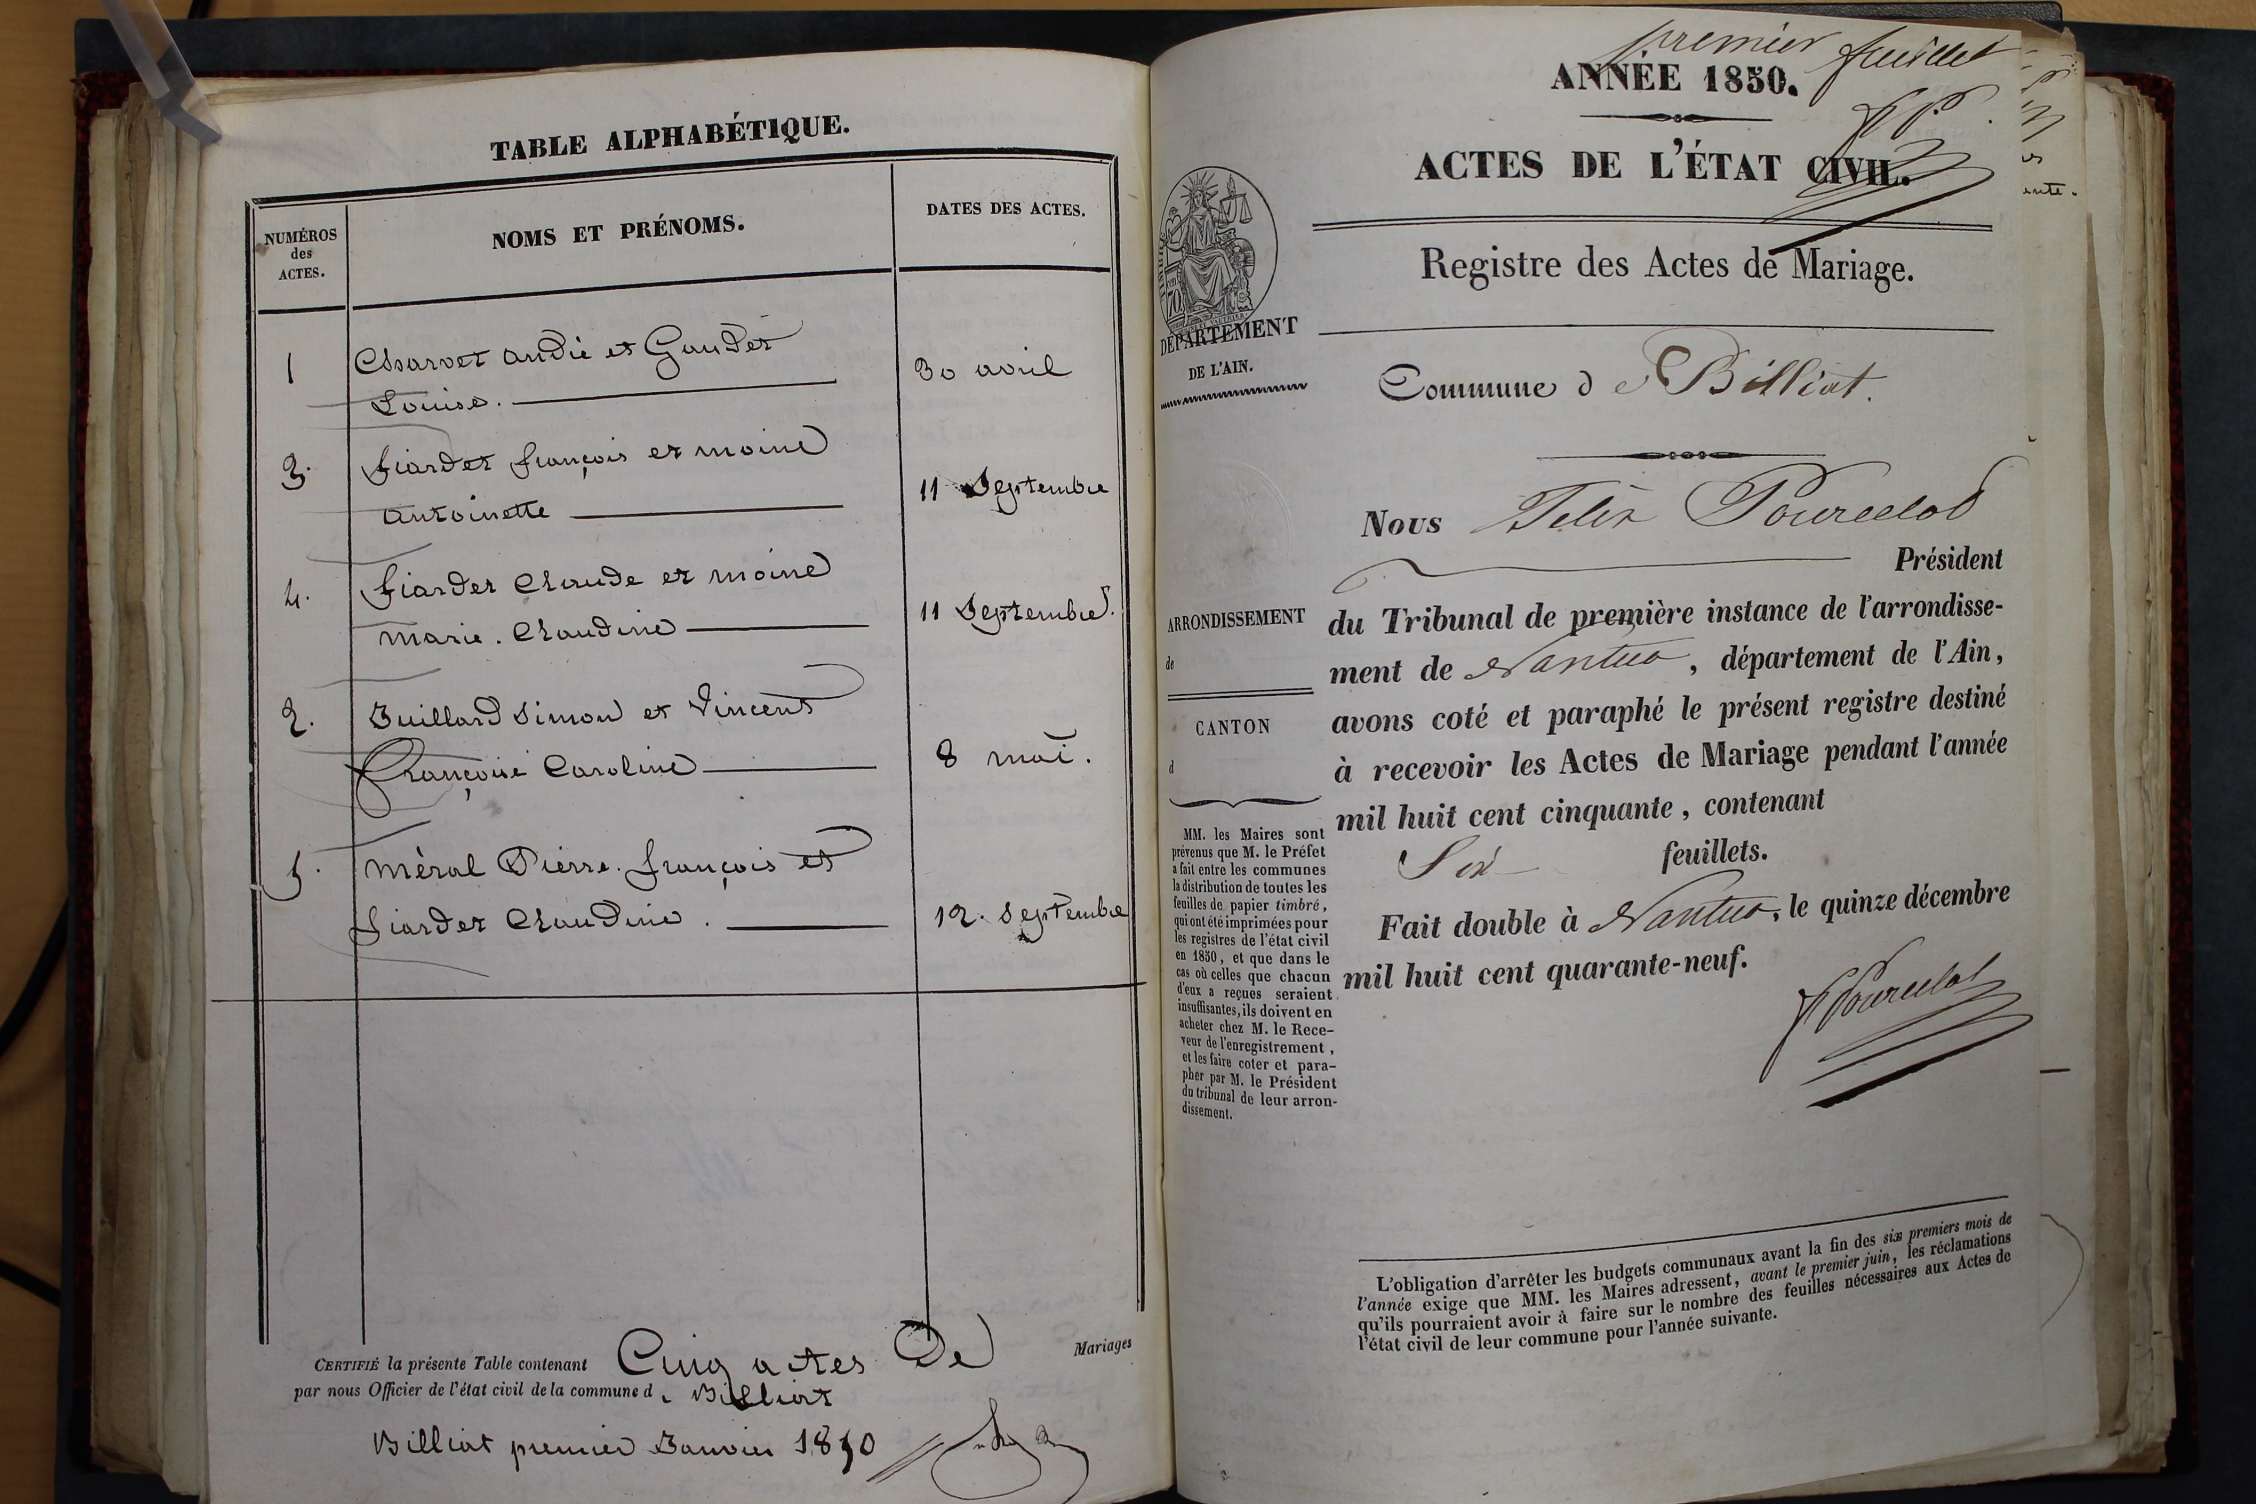 TABLE ALPHABÉTIQUE.
NUMÉROS
des
ACTES.
NOMS ET PRÉNOMS.
DATES DES ACTES.
1 Charvet andré et Gaudet
Louise.
30 avril
3. fiardet françois et moine
antoinette
11 Septembre
4. fiardet Claude et moine
marie. Claudine
11 Septembre.
2. Juillard Simon et Vincent
Françoise Caroline
8 mai.
5. méral Pierre. françois et
fiardet Claudine.
12. Septembre
CERTIFIÉ la présente Table contenant Cinq actes De Mariages
par nous Officier de l'état civil de la commune d e Billiat
Billiat premier Janvier 1850
premier feuillet
ANNÉE 1850.
F P.
ACTES DE L'ÉTAT CIVIL.
Registre des Actes de Mariage.
DÉPARTEMENT
DE L'AIN.
Commune d e Billiat.
Nous Félix Pourcelot
Président
du Tribunal de première instance de l'arrondisse-
ment de Nantua, département de l'Ain,
avons coté et paraphé le présent registre destiné
à recevoir les Actes de Mariage pendant l'année
mil huit cent cinquante, contenant
Six feuillets.
Fait double à Nantua, le quinze décembre
mil huit cent quarante-neuf.
F Pourcelot
ARRONDISSEMENT
de
CANTON
d
MM. les Maires sont
prévenus que M. le Préfet
a fait entre les communes
la distribution de toutes les
feuilles de papier timbré,
qui ont été imprimées pour
les registres de l'état civil
en 1850, et que dans le
cas où celles que chacun
d'eux a reçues seraient
insuffisantes, ils doivent en
acheter chez M. le Rece-
veur de l'enregistrement,
et les faire coter et para-
pher par M. le Président
du tribunal de leur arron-
dissement.
L'obligation d'arrêter les budgets communaux avant la fin des six premiers mois de
l'année exige que MM. les Maires adressent, avant le premier juin, les réclamations
qu'ils pourraient avoir à faire sur le nombre des feuilles nécessaires aux Actes de
l'état civil de leur commune pour l'année suivante.